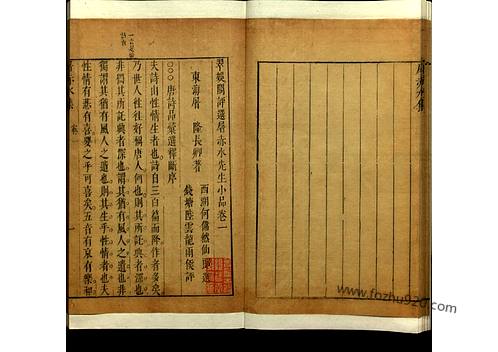 翠娛閣評選屠赤水先生小品卷一
東海屠 隆長卿著
西湖何偉然仙臞選
錢塘陸雲龍雨侯評
唐詩品彙選釋斷序
夫詩由性情生者也詩自三百篇而降作者多矣
乃世人往往好稱唐人何也則其所託興者深也
非獨其所託興者深也謂其猶有風人之遺也非
獨謂其猶有風人之遺也則其生乎性情者也夫
性情有悲有喜要之乎可喜矣五音有哀有樂和
屠赤水集
卷一
www.fozhu920.com